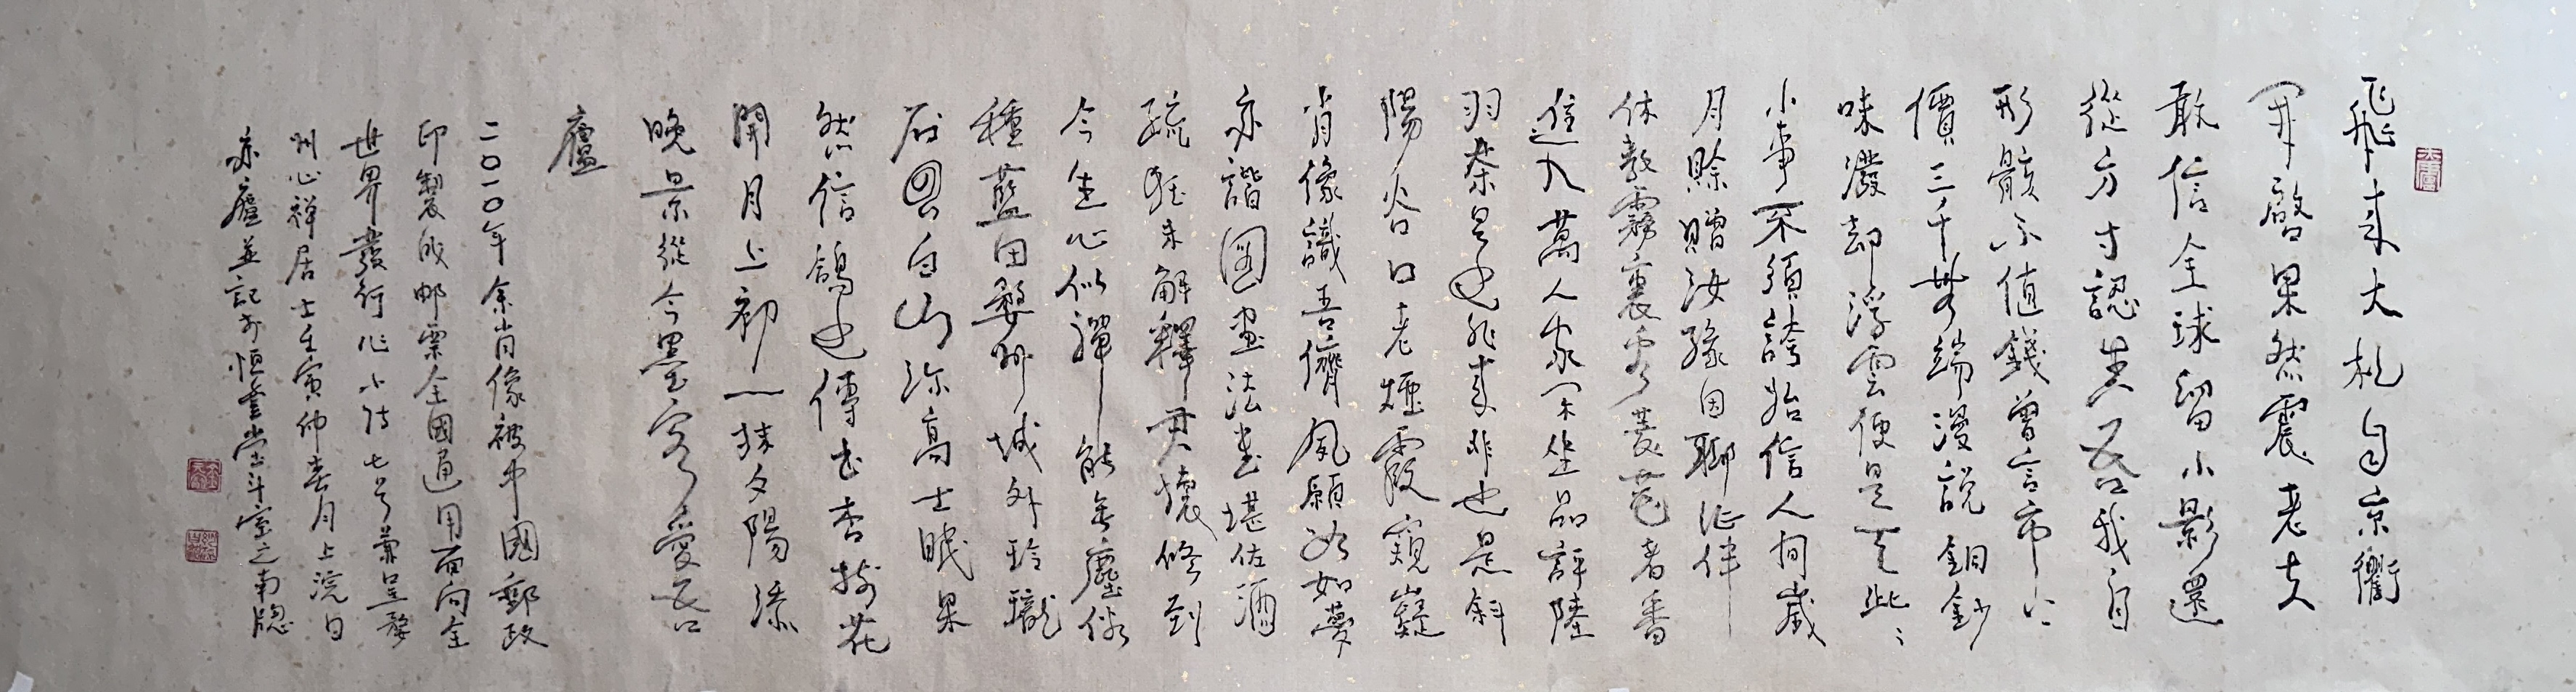 飛來大札自京衢
開啟果然震老夫
敢信全球留小影還
從方寸認真吾我自
形骸不值錢曾言市上
價三千無端漫說銅鈔
味潑却浮雲便是天此々
小事不須誇始信人間歲
月賒贈汝緣因聊作伴
休教霧裏看菱花者番
進入萬人家閑坐品評陸
羽茶是也非來非也是斜
陽谷口老煙霞窺凝
肖像識吾儕夙願如夢
亦諧圖畫法書堪佐酒
疏狂未解釋君懷修到
今生心似禪能無塵俗
種藍田婺州城外玲瓏
石回白山深高士眠果
然信鴿也傳書杏樹花
開月上初一抹夕陽添
晚景從今墨客愛吾
廬
二〇一〇年余肖像被中國郵政
印製成郵票全國通用面向全
世界發行作小詩七首呈婺
州心禪居士壬寅仲春月上浣日
亦廬並記於恒畫堂斗室之南牕